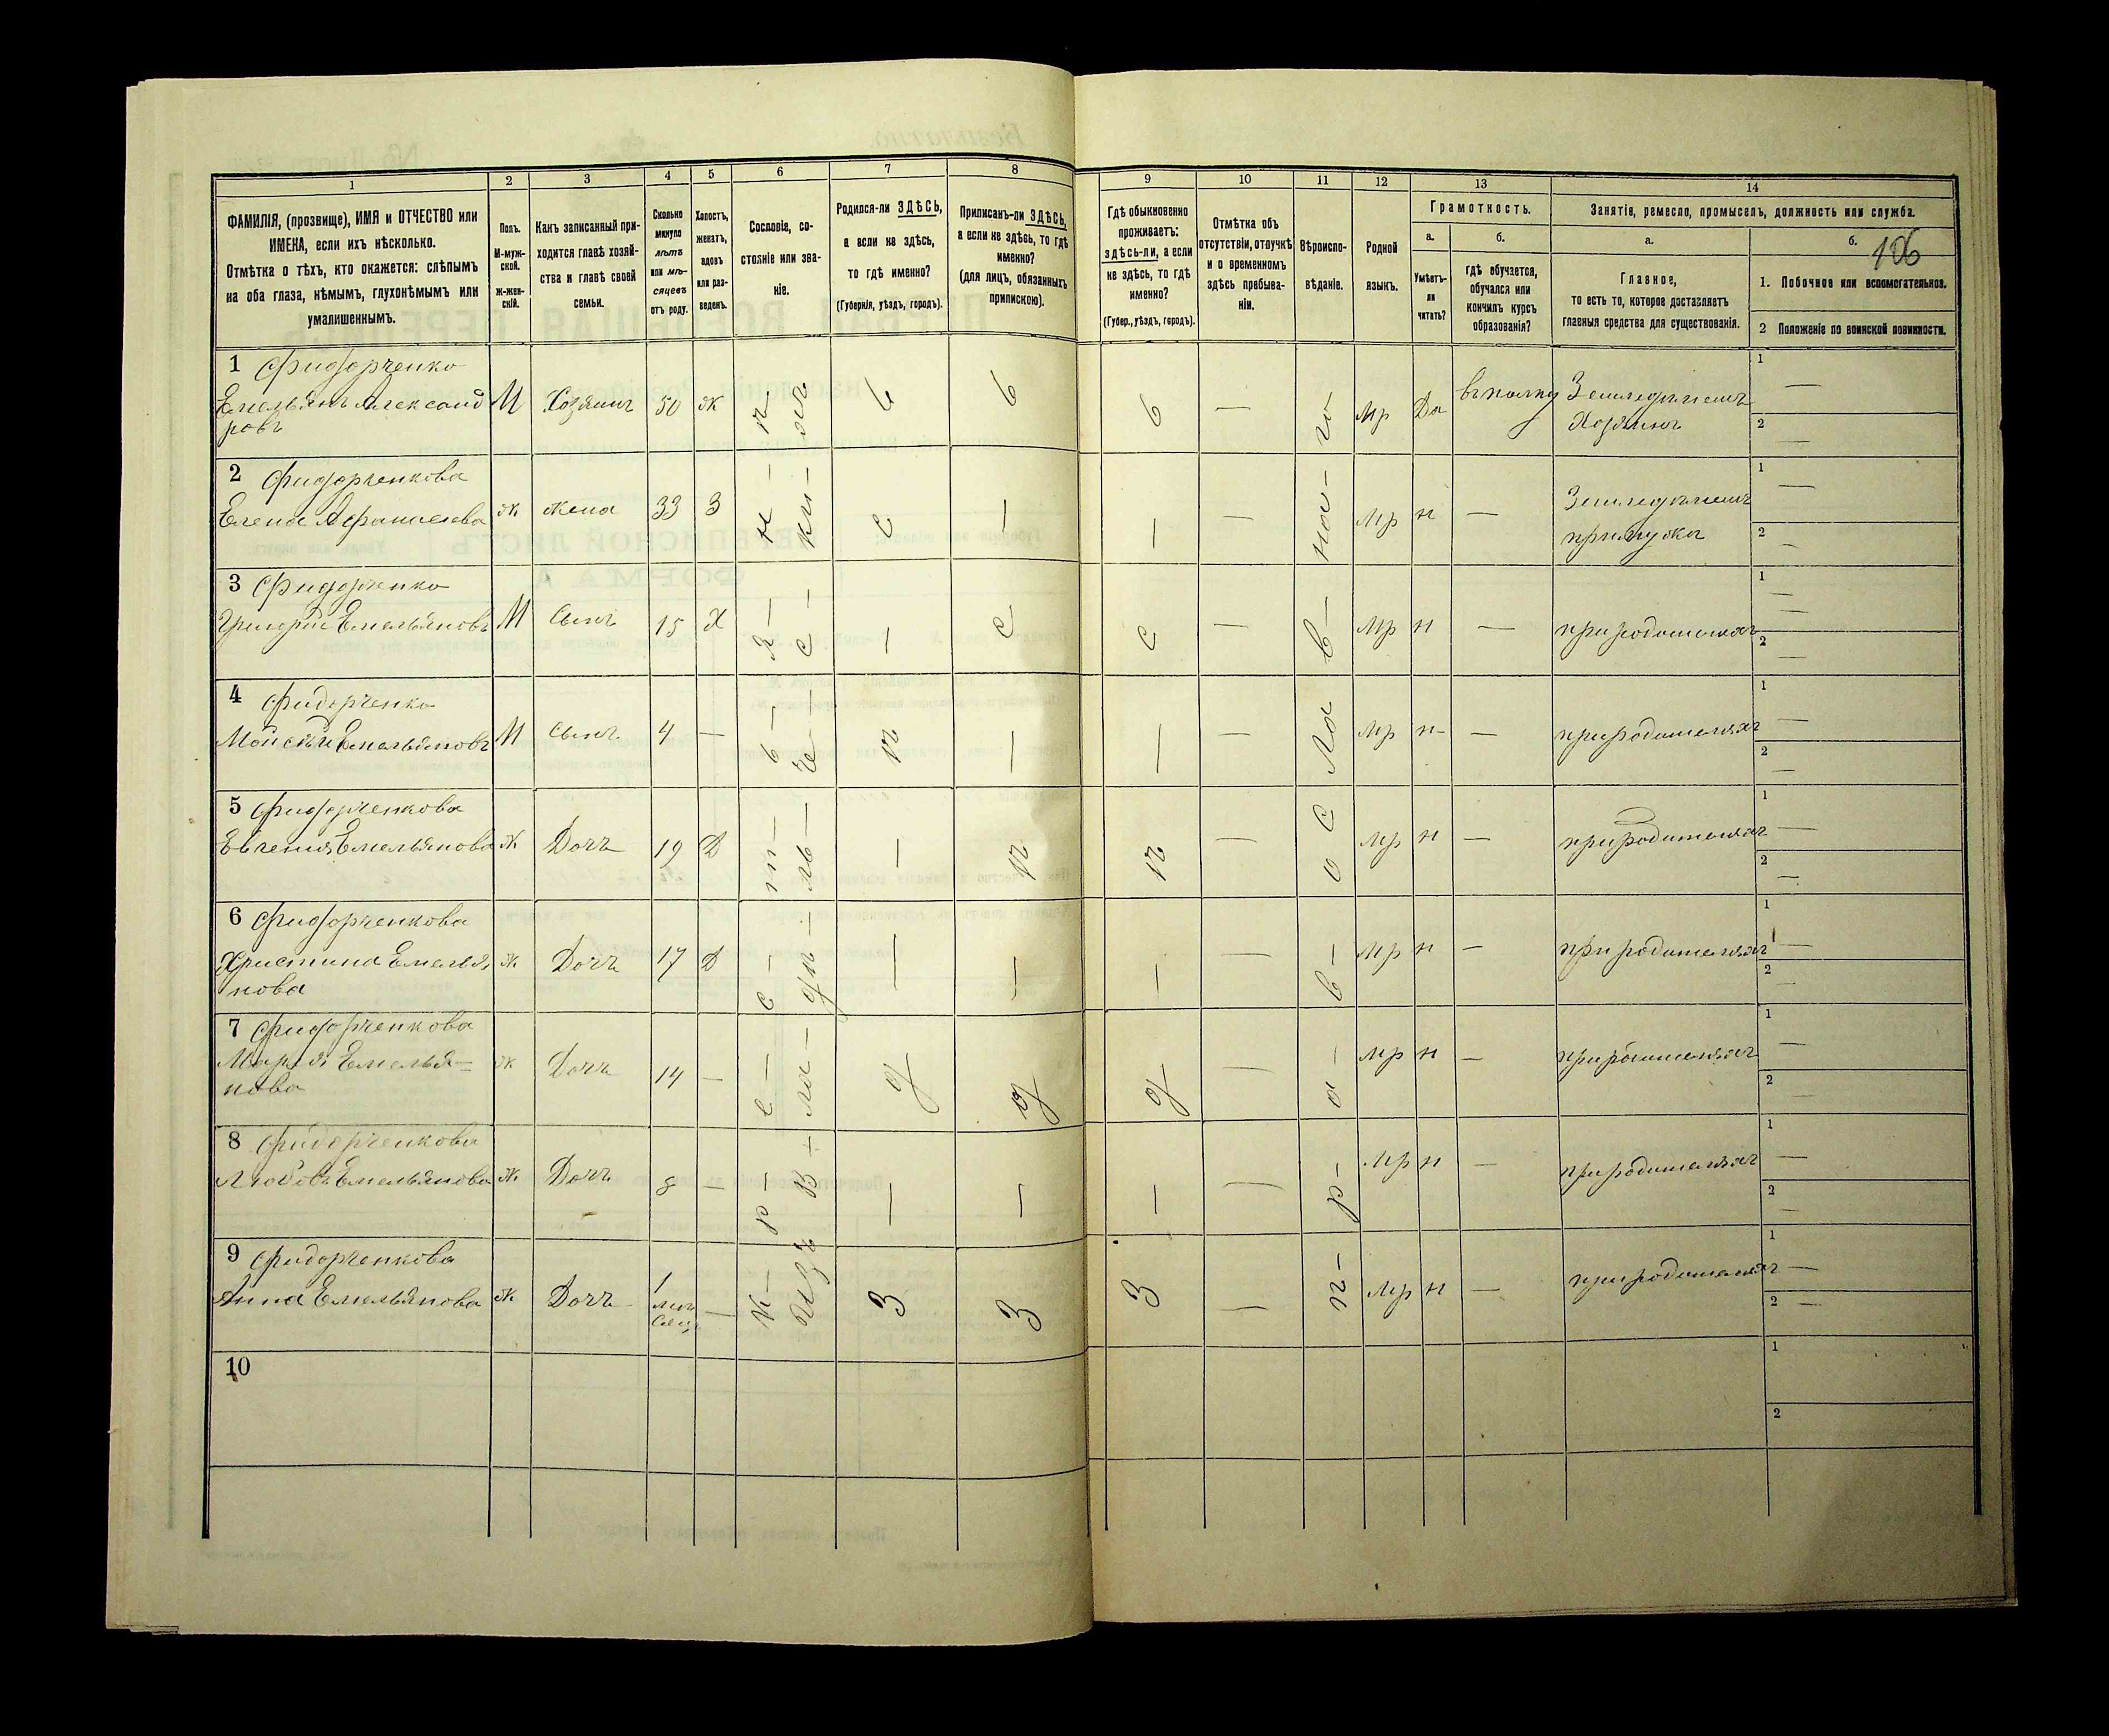 1 2 3 4 5 6 7 8 9 10 11 12 13 14
ФАМИЛІЯ, (прозвище), ИМЯ и ОТЧЕСТВО или
ИМЕНА, если ихъ нѣсколько.
Отмѣтка о тѣхъ, кто окажется: слѣпымъ
на оба глаза, нѣмымъ, глухонѣмымъ или
умалишеннымъ.
Полъ.
М-муж-
ской.
Ж-жен-
скій.
Какъ записанный при-
ходится главѣ хозяй-
ства и главѣ своей
семьи.
Сколько
минуло
лѣтъ
или мѣ-
сяцевъ
отъ роду.
Холостъ,
женатъ,
вдовъ
или раз-
веденъ.
Сословіе, со-
стояніе или зва-
ніе.
Родился-ли ЗДѢСЬ,
а если не здѣсь,
то гдѣ именно?
(Губернія, уѣздъ, городъ).
Приписанъ-ли ЗДѢСЬ,
а если не здѣсь, то гдѣ
именно?
(для лицъ, обязанныхъ
припискою).
Гдѣ обыкновенно
проживаетъ:
ЗДѢСЬ-ли, а если
не здѣсь, то гдѣ
именно?
(Губер., уѣздъ, городъ).
Отмѣтка объ
отсутствіи, отлучкѣ
и о временномъ
здѣсь пребыва-
ніи.
Вѣроиспо-
вѣданіе.
Родной
языкъ.
Грамотность.
а.
Умѣетъ-
ли
читать?
б.
гдѣ обучается,
обучался или
кончилъ курсъ
образованія?
Занятіе, ремесло, промыселъ, должность или служба.
а.
Главное,
то есть то, которое доставляетъ
главныя средства для существованія.
б.
106
1. Побочное или вспомогательное.
2 Положеніе по воинской повинности.
1 Фидорченко
Емельянъ Александ
ровъ
М Хозяинъ 50 Ж — Мр Да въ полку Земледѣлецъ
Хозяинъ 1 — 2 —
2 Фидорченкова
Елена Афанасиева Ж Жена 33 З — Мр н — Земледѣлецъ
при мужа 1 — 2 —
3 Фидорченко
Григорій Емельяновъ М Сынъ 15 Х — Мр н — при родителяхъ 1 — 2 —
4 Фидорченко
Мойсѣй Емельяновъ М Сынъ 4 — — Мр н — при родителяхъ 1 — 2 —
5 Фидорченкова
Евгения Емельянова Ж Дочь 19 Д — Мр н — при родителяхъ 1 — 2 —
6 Фидорченкова
Христина Емелья
нова
Ж Дочь 17 Д — Мр н — при родителяхъ 1 — 2 —
7 Фидорченкова
Марія Емелья-
нова
Ж Дочь 14 — — Мр н — при родителяхъ 1 — 2 —
8 Фидорченкова
Любовь Емельянова Ж Дочь 8 — — Мр н — при родителяхъ 1 — 2 —
9 Фидорченкова
Анна Емельянова Ж Дочь 1
— Мр н — при родителяхъ 1 — 2 —
10 1 2
Здѣсь
Здѣсь
Здѣсь
Православная